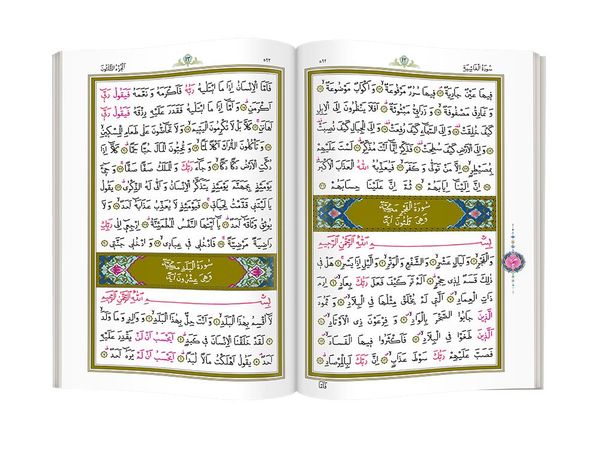 سُورَةُ الْغَاشِيَةِ
٥٩٢
ف۪يهَا عَيْنٌ جَارِيَةٌ ف۪يهَا سُرُرٌ مَرْفُوعَةٌ وَاَكْوَابٌ مَوْضُوعَةٌ
وَنَمَارِقُ مَصْفُوفَةٌ وَزَرَابِيُّ مَبْثُوثَةٌ اَفَلَا يَنْظُرُونَ اِلَى الْاِبِلِ
كَيْفَ خُلِقَتْ وَاِلَى السَّمَاءِ كَيْفَ رُفِعَتْ وَاِلَى الْجِبَالِ كَيْفَ نُصِبَتْ
وَاِلَى الْاَرْضِ كَيْفَ سُطِحَتْ فَذَكِّرْ اِنَّمَا اَنْتَ مُذَكِّرٌ لَسْتَ عَلَيْهِمْ
بِمُصَيْطِرٍ اِلَّا مَنْ تَوَلّٰى وَكَفَرَ فَيُعَذِّبُهُ اللّٰهُ الْعَذَابَ الْاَكْبَرَ
اِنَّ اِلَيْنَا اِيَابَهُمْ ثُمَّ اِنَّ عَلَيْنَا حِسَابَهُمْ
سُورَةُ الْفَجْرِ مَكِّيَّةٌ
وَهِيَ ثَلٰثُونَ اٰيَةً
بِسْمِ اللّٰهِ الرَّحْمٰنِ الرَّح۪يمِ
وَالْفَجْرِ وَلَيَالٍ عَشْرٍ وَالشَّفْعِ وَالْوَتْرِ وَالَّيْلِ اِذَا يَسْرِ هَلْ ف۪ي
ذٰلِكَ قَسَمٌ لِذ۪ي حِجْرٍ اَلَمْ تَرَ كَيْفَ فَعَلَ رَبُّكَ بِعَادٍ اِرَمَ
ذَاتِ الْعِمَادِ اَلَّت۪ي لَمْ يُخْلَقْ مِثْلُهَا فِي الْبِلَادِ وَثَمُودَ
الَّذ۪ينَ جَابُوا الصَّخْرَ بِالْوَادِ وَفِرْعَوْنَ ذِي الْاَوْتَادِ
اَلَّذ۪ينَ طَغَوْا فِي الْبِلَادِ فَاَكْثَرُوا ف۪يهَا الْفَسَادَ
فَصَبَّ عَلَيْهِمْ رَبُّكَ سَوْطَ عَذَابٍ اِنَّ رَبَّكَ لَبِالْمِرْصَادِ
فَاَمَّا
اَلْجُزْءُ الثَّلٰثُونَ
فَاَمَّا الْاِنْسَانُ اِذَا مَا ابْتَلٰيهُ رَبُّهُ فَاَكْرَمَهُ وَنَعَّمَهُ فَيَقُولُ رَبّ۪ي
اَكْرَمَنِ وَاَمَّا اِذَا مَا ابْتَلٰيهُ فَقَدَرَ عَلَيْهِ رِزْقَهُ فَيَقُولُ رَبّ۪ي
اَهَانَنِ كَلَّا بَلْ لَا تُكْرِمُونَ الْيَت۪يمَ وَلَا تَحَاضُّونَ عَلٰى طَعَامِ الْمِسْك۪ينِ
وَتَأْكُلُونَ التُّرَاثَ اَكْلًا لَمًّا وَتُحِبُّونَ الْمَالَ حُبًّا جَمًّا كَلَّا اِذَا
دُكَّتِ الْاَرْضُ دَكًّا دَكًّا وَجَاءَ رَبُّكَ وَالْمَلَكُ صَفًّا صَفًّا وَج۪يءَ
يَوْمَئِذٍ بِجَهَنَّمَ يَوْمَئِذٍ يَتَذَكَّرُ الْاِنْسَانُ وَاَنّٰى لَهُ الذِّكْرٰى يَقُولُ
يَا لَيْتَن۪ي قَدَّمْتُ لِحَيَات۪ي فَيَوْمَئِذٍ لَا يُعَذِّبُ عَذَابَهُ اَحَدٌ وَلَا
يُوثِقُ وَثَاقَهُ اَحَدٌ يَا اَيَّتُهَا النَّفْسُ الْمُطْمَئِنَّةُ اِرْجِع۪ي اِلٰى رَبِّكِ
رَاضِيَةً مَرْضِيَّةً فَادْخُل۪ي ف۪ي عِبَاد۪ي وَادْخُل۪ي جَنَّت۪ي
سُورَةُ الْبَلَدِ مَكِّيَّةٌ
وَهِيَ عِشْرُونَ اٰيَةً
بِسْمِ اللّٰهِ الرَّحْمٰنِ الرَّح۪يمِ
لَا اُقْسِمُ بِهٰذَا الْبَلَدِ وَاَنْتَ حِلٌّ بِهٰذَا الْبَلَدِ وَوَالِدٍ وَمَا وَلَدَ
لَقَدْ خَلَقْنَا الْاِنْسَانَ ف۪ي كَبَدٍ اَيَحْسَبُ اَنْ لَنْ يَقْدِرَ عَلَيْهِ
اَحَدٌ يَقُولُ اَهْلَكْتُ مَالًا لُبَدًا اَيَحْسَبُ اَنْ لَمْ يَرَهُ اَحَدٌ